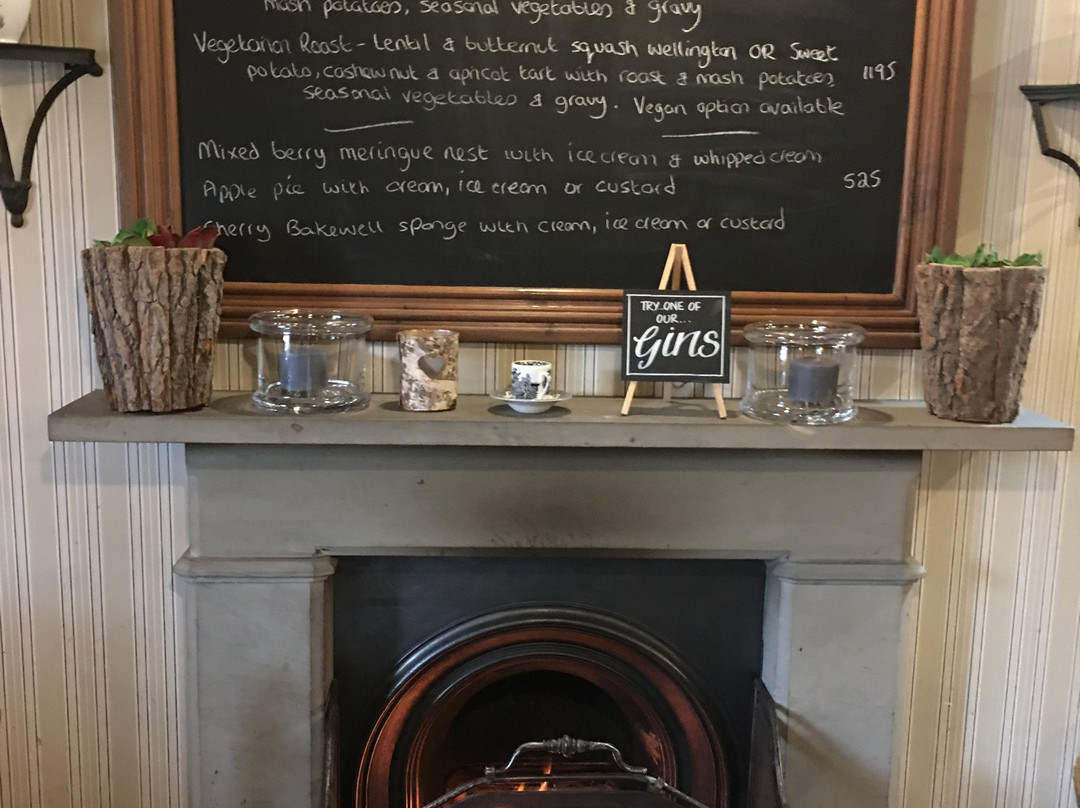 mash potatoes, seasonal vegetables & gravy
Vegetarian Roast - Lentil & butternut squash wellington OR Sweet
potato, cashew nut & apricot tart with roast & mash potatoes, 1195
seasonal vegetables & gravy. Vegan option available
Mixed berry meringue nest with ice cream & whipped cream
Apple pie with cream, ice cream or custard 525
Cherry Bakewell sponge with cream, ice cream or custard
TRY ONE OF
OUR...
Gins